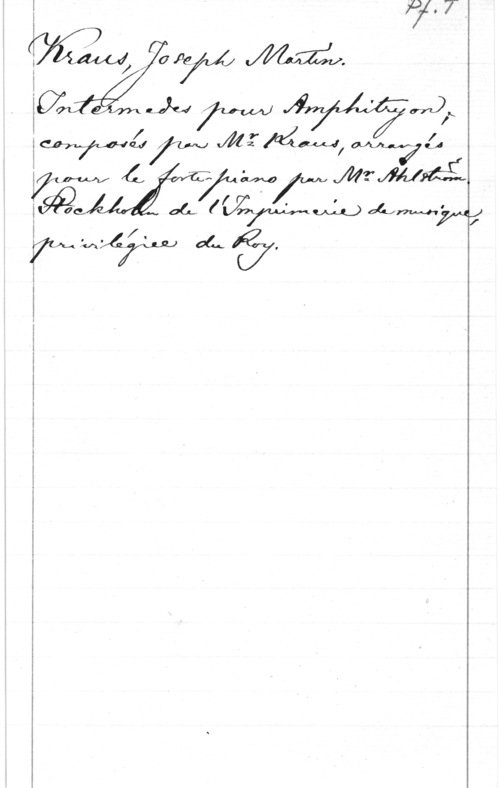 Pf. T
Kraus, Joseph Martin.
Intermedes pour Amphitryon,
composés par Mr Kraus, arrangés
pour le forte-piano par Mr Åhlström.
Stockholm de l'Imprimerie de musique,
privilégiee du Roy.